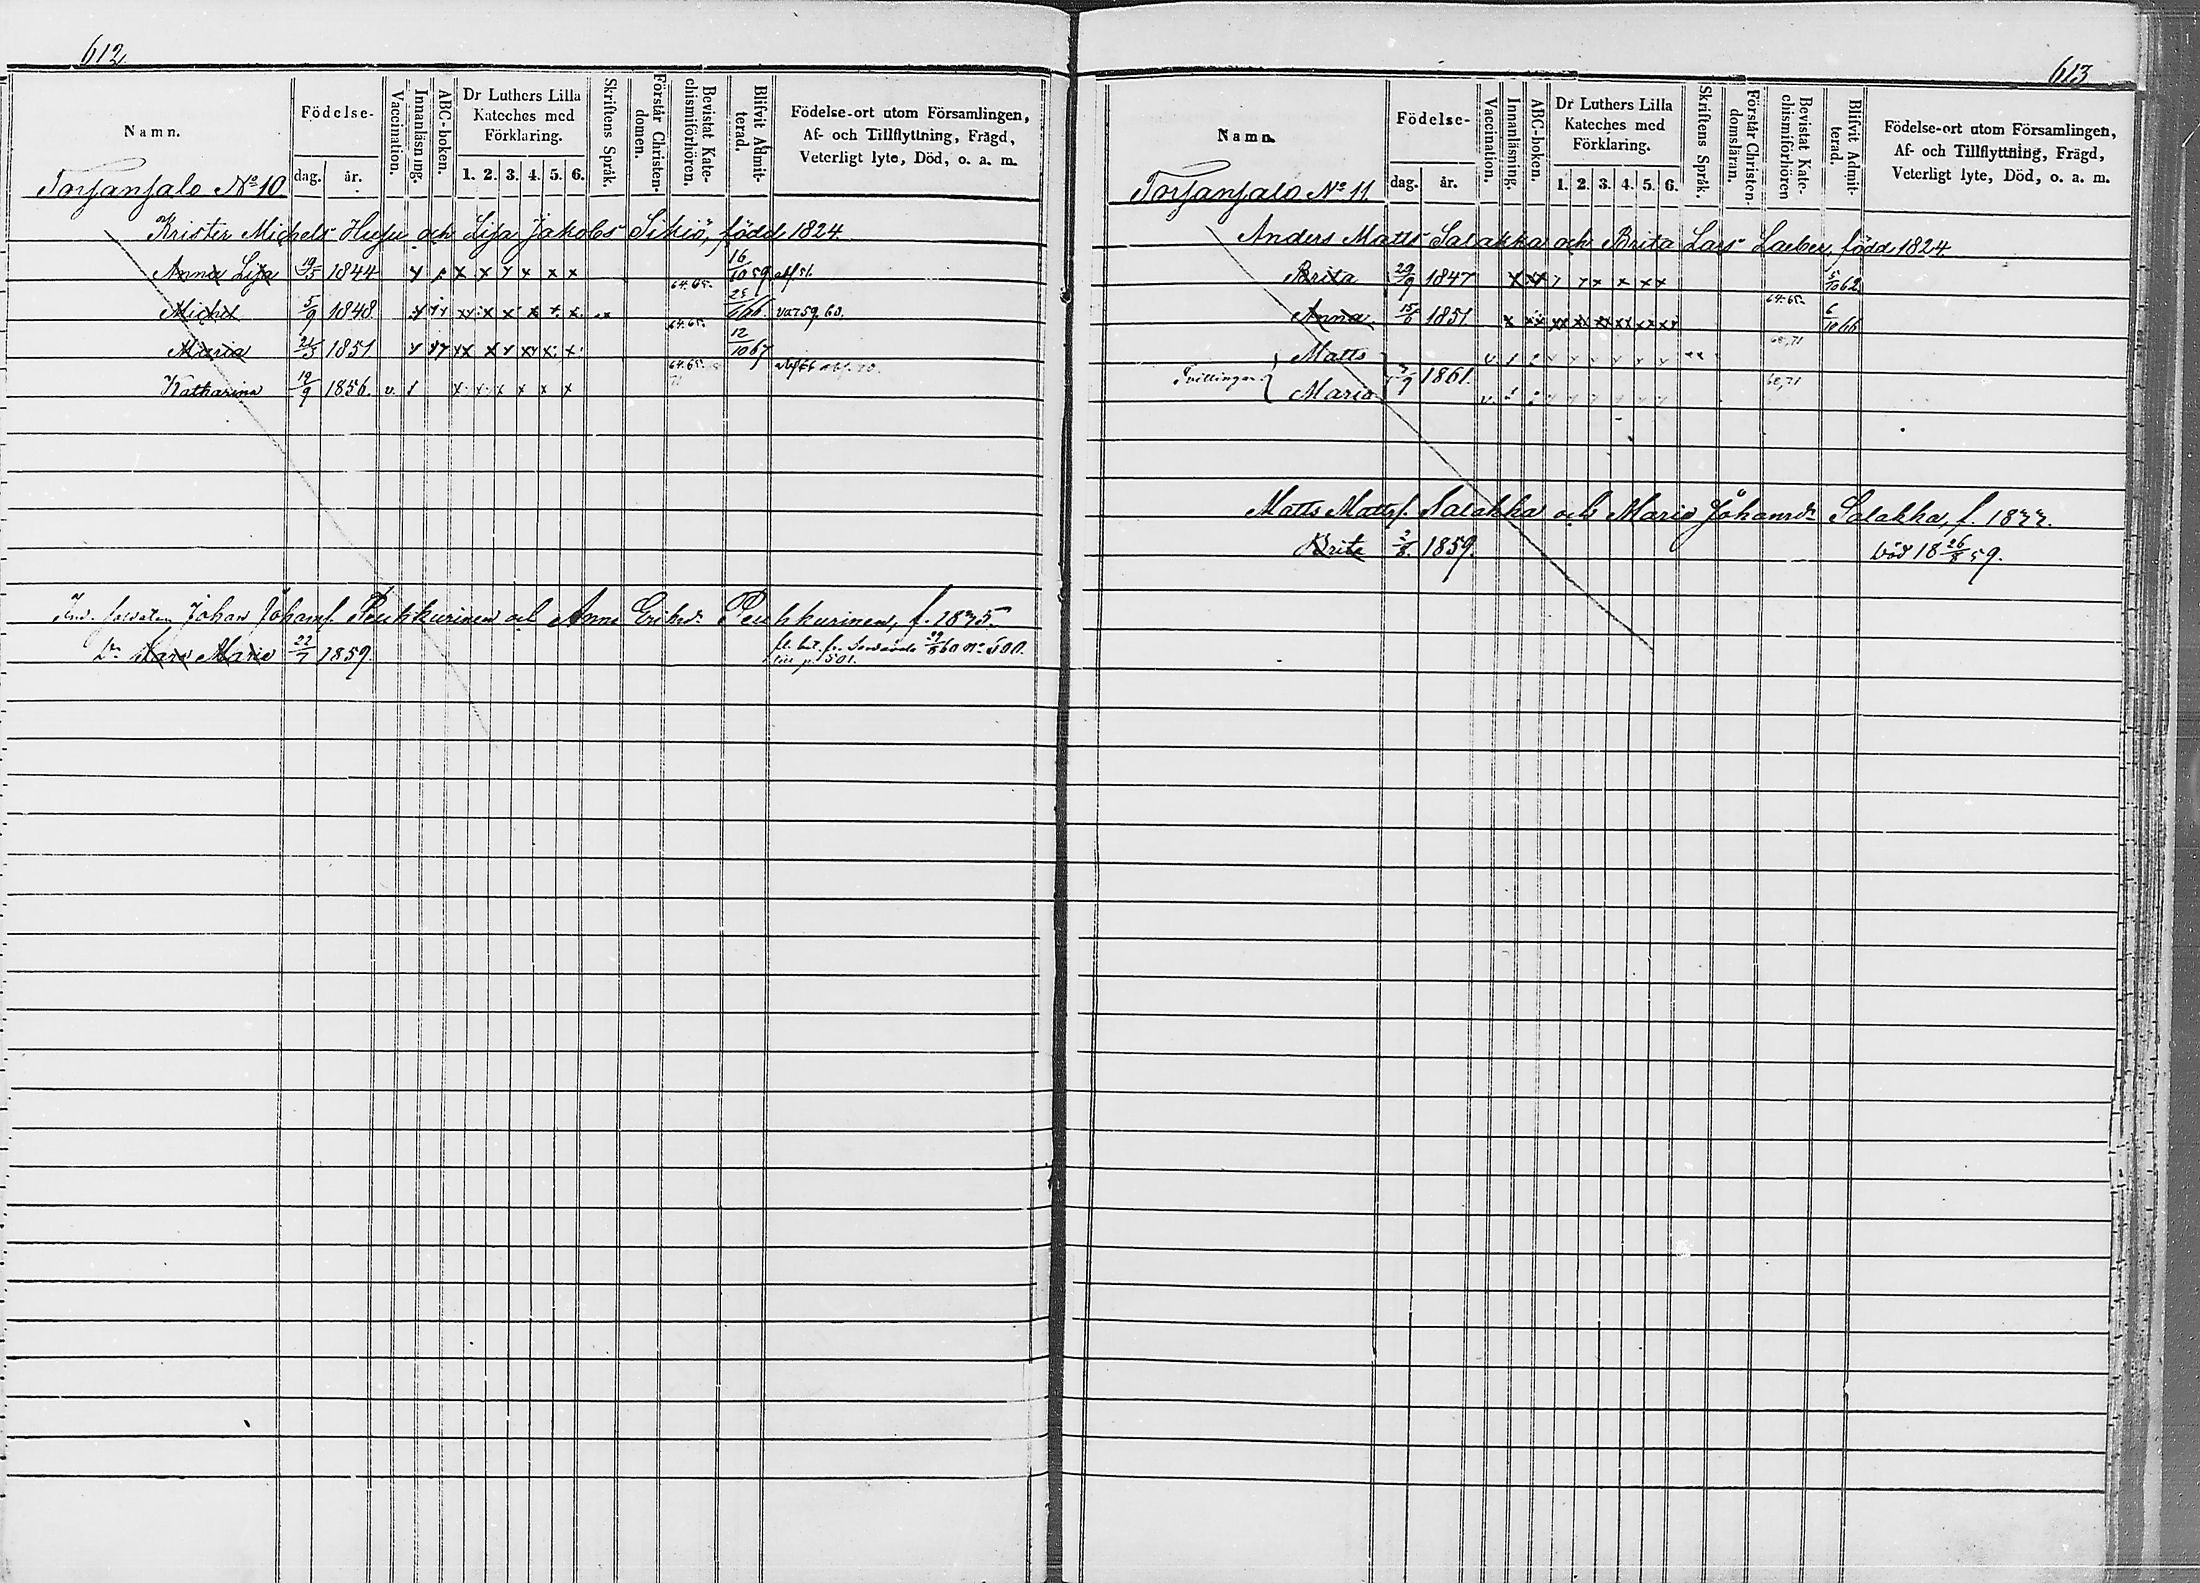 612
Namn.
Födelse-
dag. år.
Vaccination.
Innanläsning.
ABC-boken.
Dr Luthers Lilla
Kateches med
Förklaring.
1. 2. 3. 4. 5. 6.
Skriftens Språk.
Förstår Christen-
domen.
Bevistat Kate-
chismiförhören.
Blifvit Admit-
terad.
Födelse-ort utom Församlingen,
Af- och Tillflyttning, Frägd,
Veterligt lyte, Död, o. a. m.
Torsansalo No 10
Krister Michels och Lisa Jakobs Sikiö, född 1824.
Anna Lisa 19/5 1844 x x x x x x 16/10 59
Michel 5/9 1848 64.65. 66. 59. 60.
Maria 21/3 1851 64.65. 12/10 67
Katharina 19/9 1856. v. 1 x x x x x x 64.65.
71
Johan Johans. Peuhkurinen och Anna Eriksd. Peuhkurinen, f. 1835.
Maria 22/7 1859. 60 No 500.
till p. 501.
613
Namn.
Födelse-
dag. år.
Vaccination.
Innanläsning.
ABC-boken.
Dr Luthers Lilla
Kateches med
Förklaring.
1. 2. 3. 4. 5. 6.
Skriftens Språk.
Förstår Christen-
domsläran.
Bevistat Kate-
chismiförhören
Blifvit Admit-
terad.
Födelse-ort utom Församlingen,
Af- och Tillflyttning, Frägd,
Veterligt lyte, Död, o. a. m.
Torsansalo No 11.
Anders Matts Salakka och Brita Lars född 1824.
Brita 29/9 1847 5/10 62
Anna 15/6 1851. 64.65. 6/10 66
Matts v. 68,71
Tvillingar 1861.
Maria v. 68,71
Matts Matts. Salakka och Maria Johansdr Salakka, f. 1833.
Brita 2/8. 1859. död 18 26/8 59.